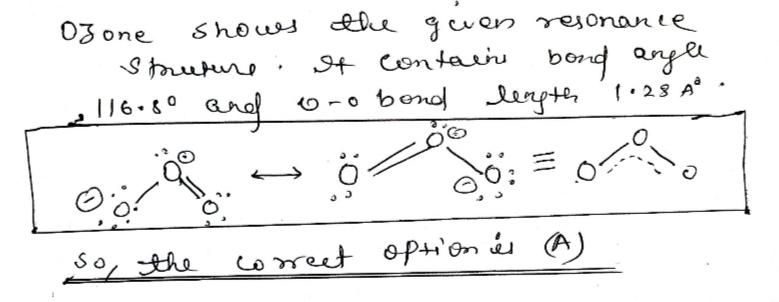 Ozone shows the given resonance
Struture. It contain bond angle
116.80 and o-o bond length 1.28 A°.
⊖ :O: O⊕ O ↔ O O⊖ ⊖ O: ≡ O O O
so, the correct option is (A)